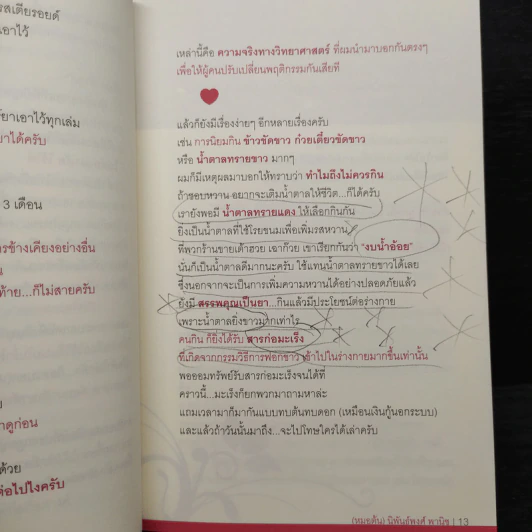 รสเตียรอยด์
เอาไว้
ยาเอาไว้ทุกเล่ม
ยาได้ครับ
3 เดือน
ารข้างเคียงอย่างอื่น
น
ท้าย...ก็ไม่สายครับ
ย
าดูก่อน
ด้วย
ต่อไปไงครับ
เหล่านี้คือ ความจริงทางวิทยาศาสตร์ ที่ผมนำมาบอกกันตรงๆ
เพื่อให้ผู้คนปรับเปลี่ยนพฤติกรรมกันเสียที
แล้วก็ยังมีเรื่องง่ายๆ อีกหลายเรื่องครับ
เช่น การนิยมกิน ข้าวขัดขาว ก๋วยเตี๋ยวขัดขาว
หรือ น้ำตาลทรายขาว มากๆ
ผมก็มีเหตุผลมาบอกให้ทราบว่า ทำไมถึงไม่ควรกิน
ถ้าชอบหวาน อยากจะเติมน้ำตาลให้ชีวิต...ก็ได้ครับ
เรายังพอมี น้ำตาลทรายแดง ให้เลือกกินกัน
ยิ่งเป็นน้ำตาลที่ใช้โรยขนมเพื่อเพิ่มรสหวาน
ที่พวกร้านขายเต้าฮวย เฉาก๊วย เขาเรียกกันว่า "งบน้ำอ้อย"
นั่นก็เป็นน้ำตาลดีมากนะครับ ใช้แทนน้ำตาลทรายขาวได้เลย
ซึ่งนอกจากจะเป็นการเพิ่มความหวานได้อย่างปลอดภัยแล้ว
ยังมี สรรพคุณเป็นยา...กินแล้วมีประโยชน์ต่อร่างกาย
เพราะน้ำตาลยิ่งขาวมากเท่าไร
คนกิน ก็ยิ่งได้รับ สารก่อมะเร็ง
ที่เกิดจากกรรมวิธีการฟอกขาว เข้าไปในร่างกายมากขึ้นเท่านั้น
พอออมทรัพย์รับสารก่อมะเร็งจนได้ที่
คราวนี้...มะเร็งก็ยกพวกมาถามหาล่ะ
แถมเวลามาก็มากันแบบทบต้นทบดอก (เหมือนเงินกู้นอกระบบ)
และแล้วถ้าวันนั้นมาถึง...จะไปโทษใครได้เล่าครับ
(หมอดื้อ) นิพันธ์พงศ์ พานิช | 13